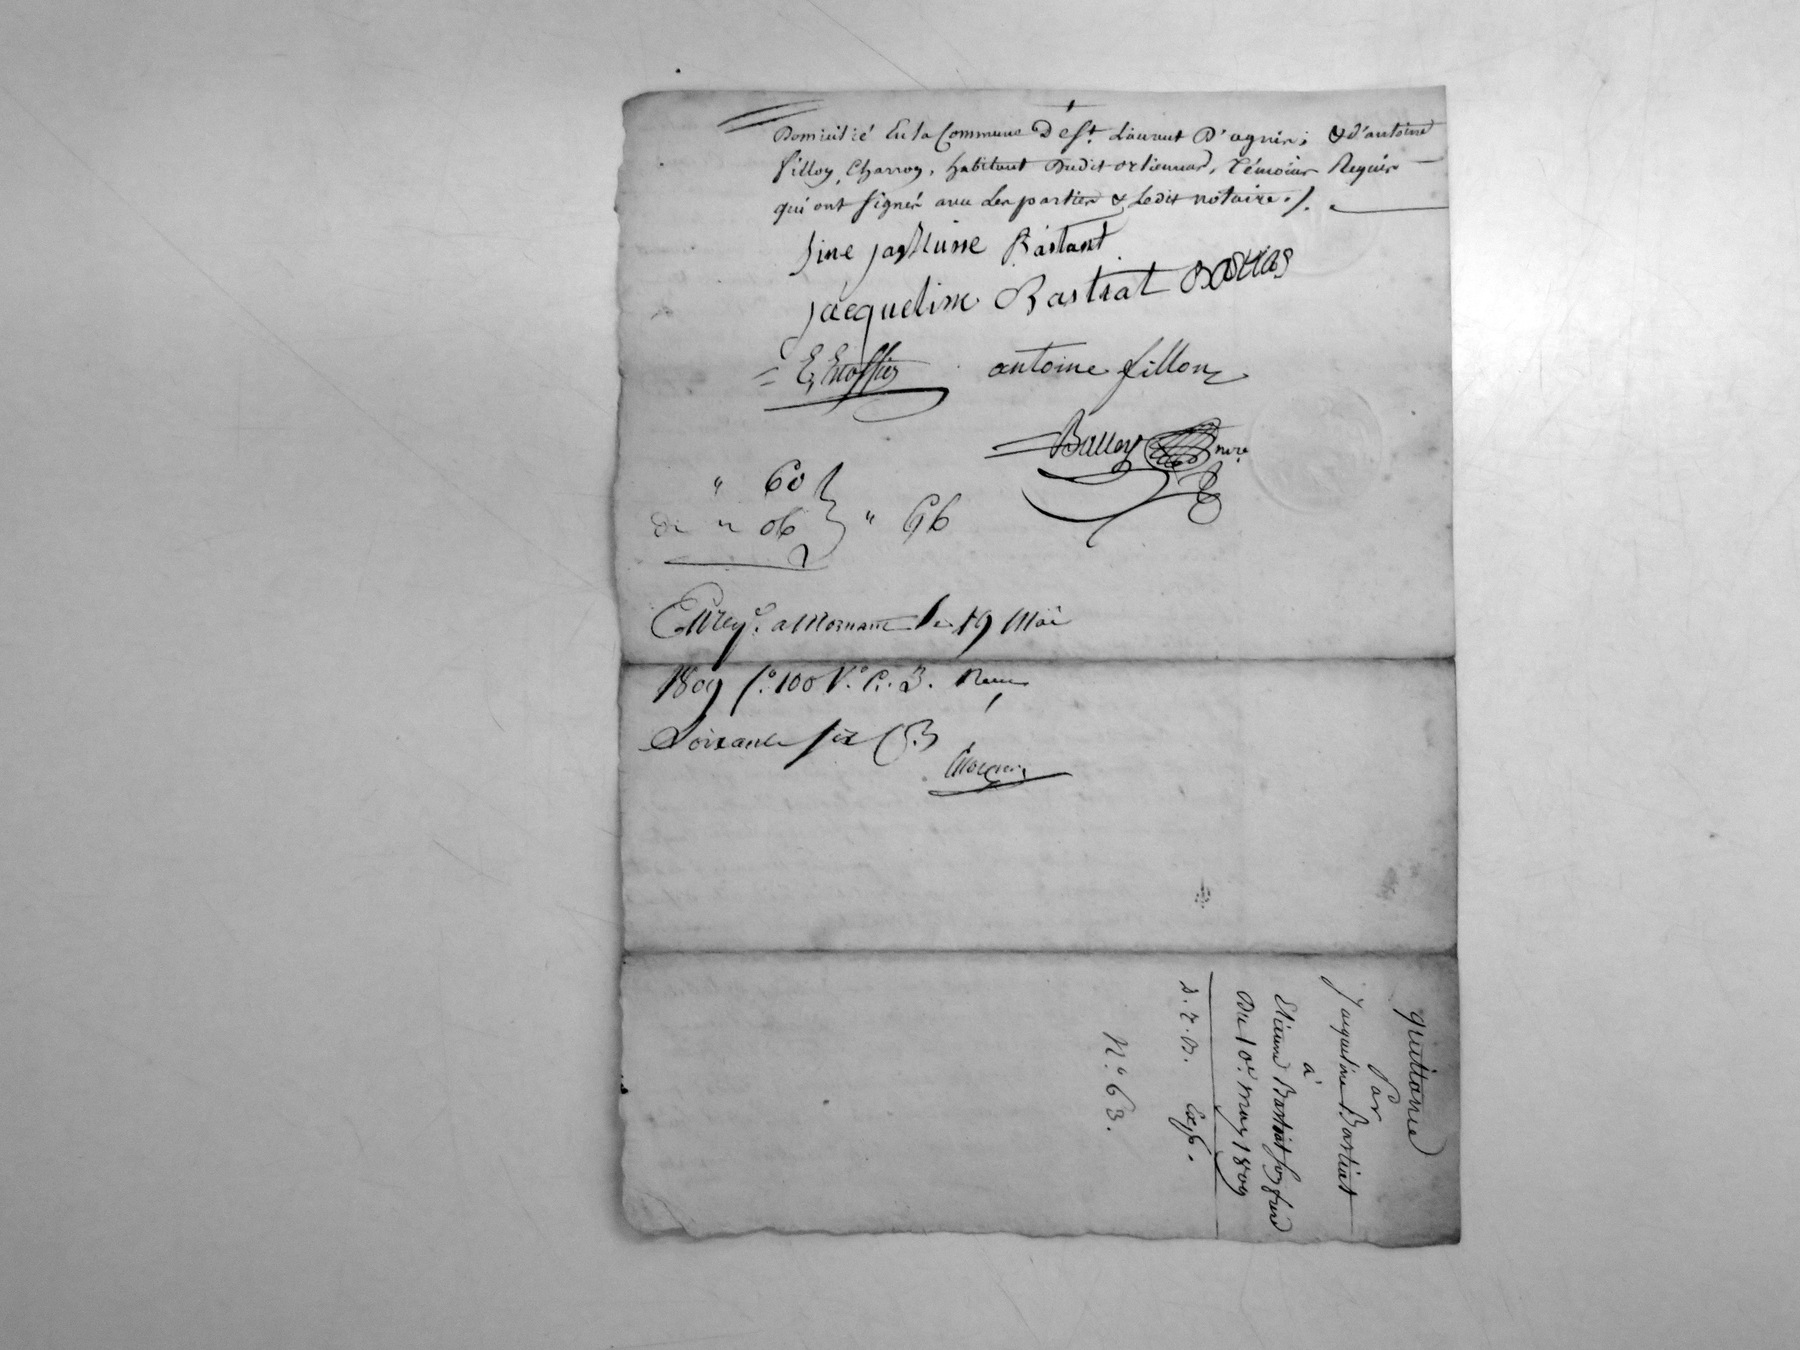 Domicilié En la Commune De St. Laurent D'agnis; & d'antoine
fillon, Charron, habitant Dudit orlienas, Témoins Requis
qui ont signés avec les parties & ledit notaire./.
Bastiat
jacqueline Bastiat
antoine fillon
Balley nre
" 60
" 06 } " 66
Enregé. a Mornant le 19 Mai
1809 fo. 100 Vo. C. 3. Reçu
Soixante six C.
quittance
Par
Jacqueline Bastiat
à
Etienne Bastiat son frère
Du 10e. may 1809
Exp.
N.° 63.